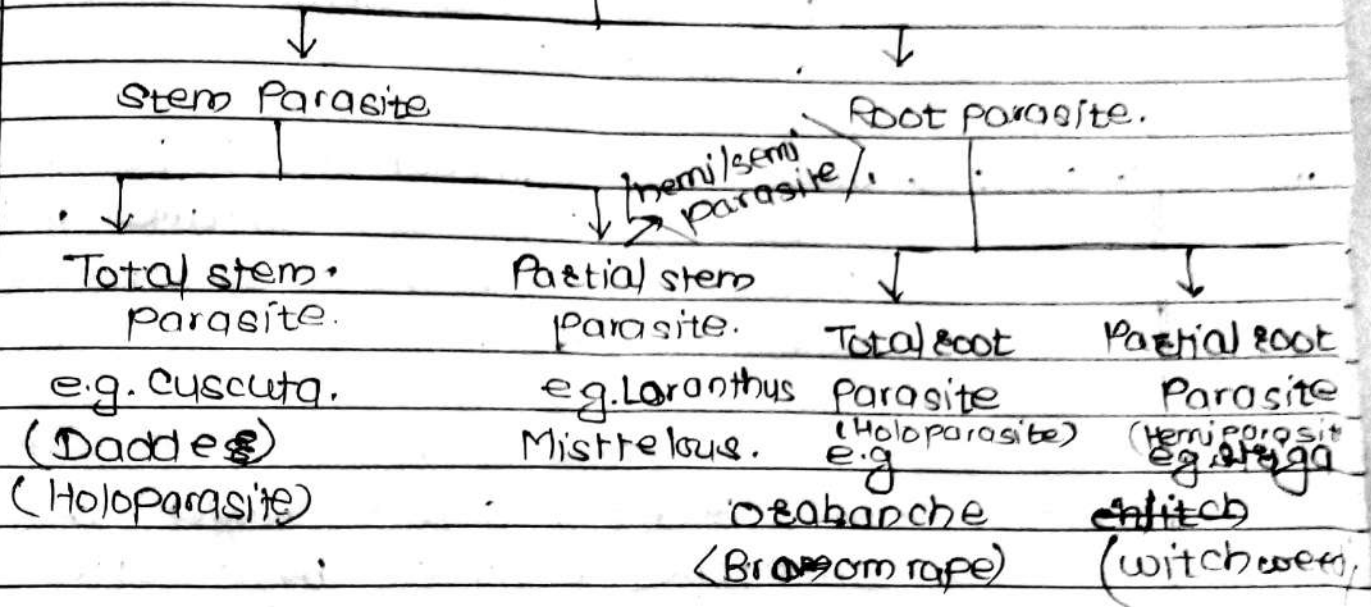 Stem Parasite
Root parasite.
hemi/semi
parasite
Total stem.
parasite.
e.g. Cuscuta.
(Dadder)
(Holoparasite)
Partial stem
parasite.
eg. Loranthus
Mistrelous.
Total root
Parasite
(Holoparasite)
e.g
orabanche
(Broomrape)
Partial root
Parasite
(Hemiparasit
eg. striga
(witchweed